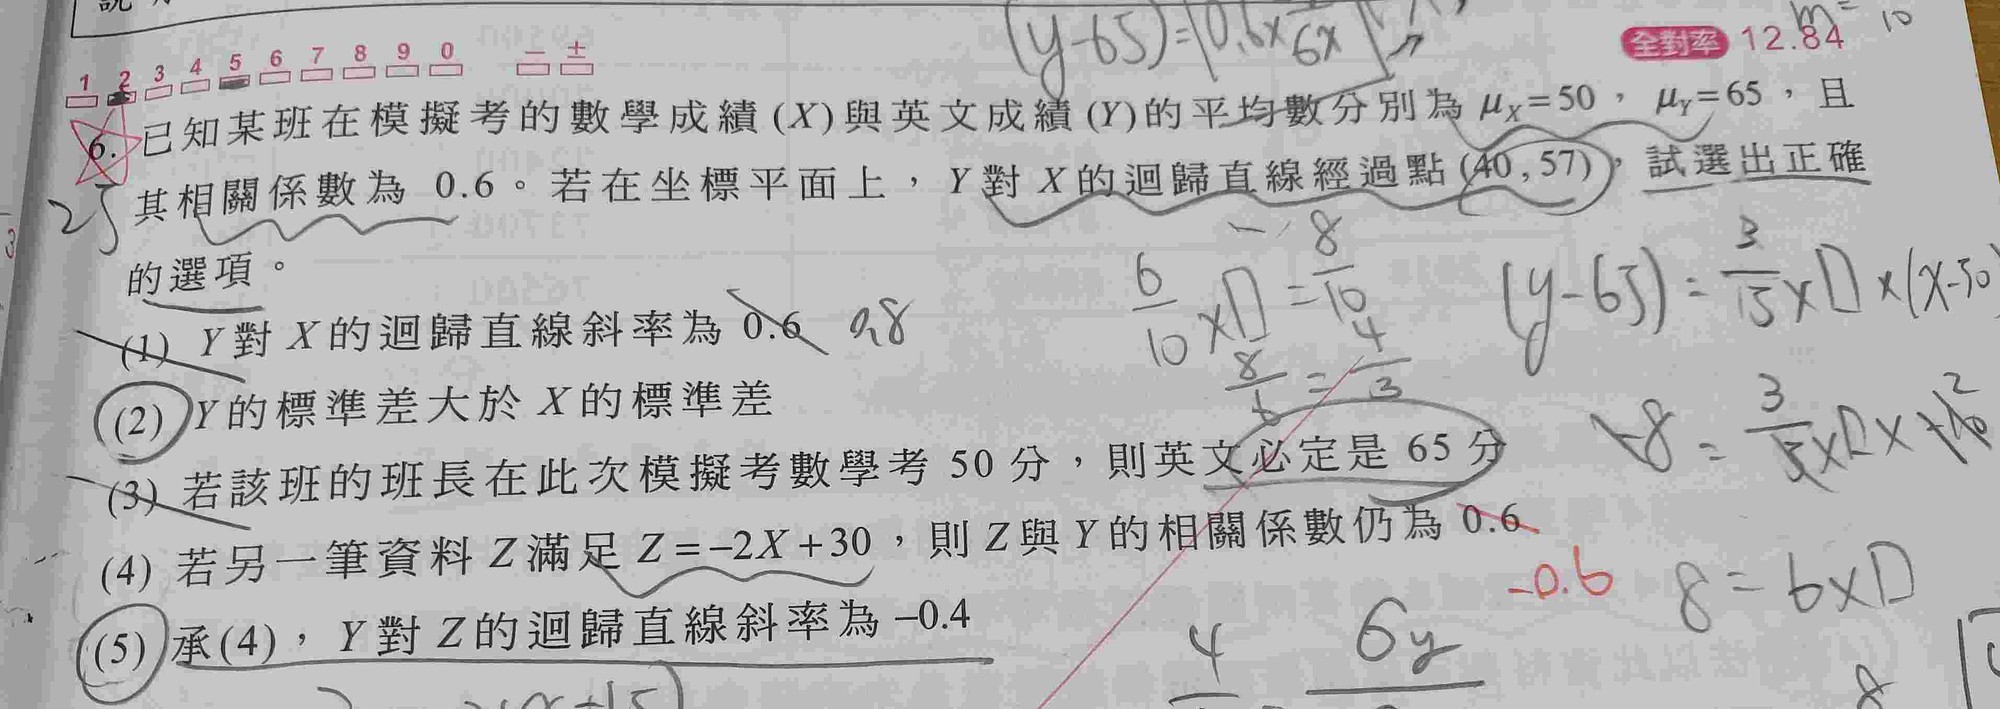 (y-65)=(0.6×
6x
m=
10
全對率 12.84
1 2 3 4 5 6 7 8 9 0 − ±
6. 已知某班在模擬考的數學成績(X)與英文成績(Y)的平均數分別為 μX=50，μY=65，且
25 其相關係數為 0.6。若在坐標平面上，Y對X的迴歸直線經過點(40,57)，試選出正確
的選項。
6/10×□=8/10
(y-65)=3/15×□×(x-50
(1) Y對X的迴歸直線斜率為 0.6 0.8
8/6=4/3
(2) Y的標準差大於X的標準差
-8=3/5×□×-10 2
(3) 若該班的班長在此次模擬考數學考 50 分，則英文必定是 65 分
(4) 若另一筆資料Z滿足Z=−2X+30，則Z與Y的相關係數仍為 0.6
-0.6
8=6×□
(5) 承(4)，Y對Z的迴歸直線斜率為 −0.4
4
6y
8